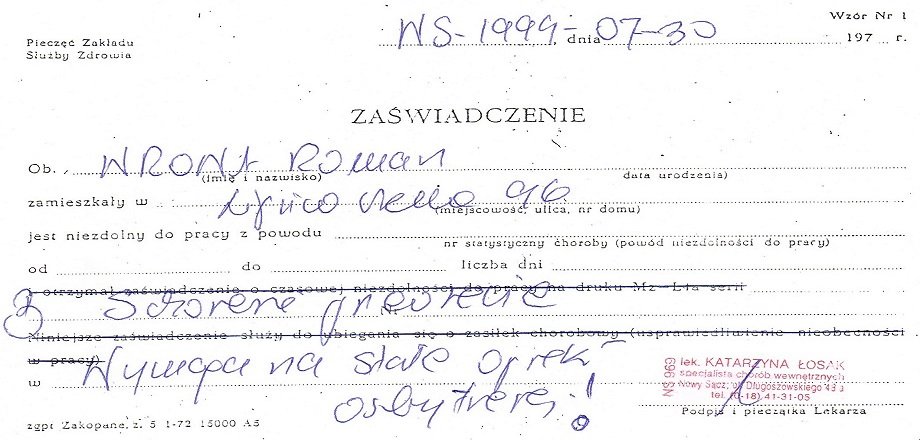 Wzór Nr 1
Pieczęć Zakładu
Służby Zdrowia
NS-1999, dnia 07-30 197 r.
ZAŚWIADCZENIE
Ob. WRONA ROMAN
(imię i nazwisko) data urodzenia)
zamieszkały w 96
(miejscowość, ulica, nr domu)
jest niezdolny do pracy z powodu
nr statystyczny choroby (powód niezdolności do pracy)
od do liczba dni
i otrzymał zaświadczenie o czasowej niezdolności do pracy na druku Mz-L1a serii
Niniejsze zaświadczenie służy do ubiegania się o zasiłek chorobowy (usprawiedliwienie nieobecności
w pracy)
Wymaga na stałe opieki
w
!
NS 969
lek. KATARZYNA ŁOSAK
specjalista chorób wewnętrznych
Nowy Sącz, ul. Długoszowskiego
tel. (0-18) 41-31-05
Podpis i pieczątka Lekarza
zgpt Zakopane, z. 5 1-72 15000 A5